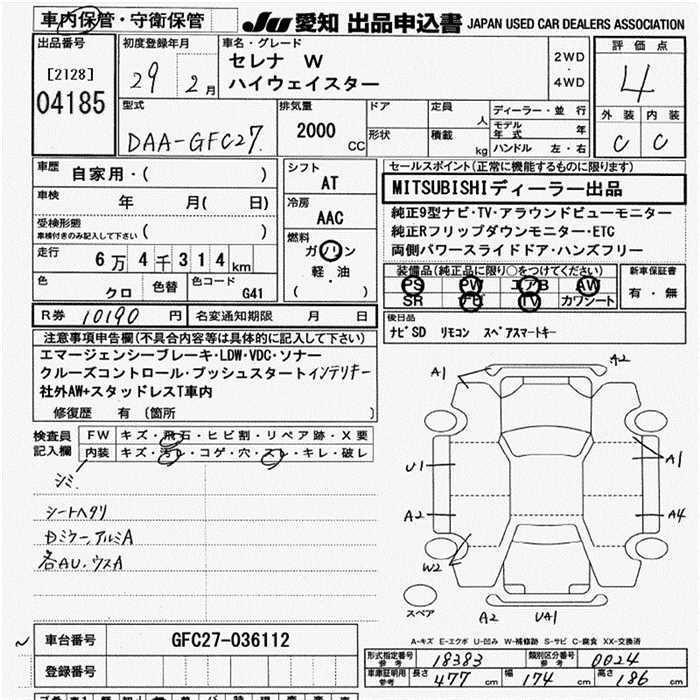 車内保管・守衛保管
JU 愛知 出品申込書 JAPAN USED CAR DEALERS ASSOCIATION
出品番号
[2128]
04185
初度登録年月
29年 2月
車名・グレード
セレナ W
ハイウェイスター
2WD
・
4WD
評価点
4
外装 内装
C C
型式
DAA-GFC27
排気量
2000
CC
ドア
形状
定員 人
積載 kg
ディーラー・並行
モデル年式 年
ハンドル 左・右
車歴 自家用・( )
車検 年 月( 日)
受検形態
車検付きのみ記入して下さい ( )
走行 6万4千314km
色 クロ 色替 色コード G41
シフト
AT
冷房
AAC
燃料
ガソリン
軽・油
( )
セールスポイント(正常に機能するものに限ります)
MITSUBISHIディーラー出品
純正9型ナビ・TV・アラウンドビューモニター
純正Rフリップダウンモニター・ETC
両側パワースライドドア・ハンズフリー
装備品(純正品に限り○をつけてください)
PS PW エアB AW
SR ナビ TV カワシート
新車保証書
有・無
R券 10190 円 名変通知期限 月 日
後日品
ナビSD リモコン スペアスマートキー
注意事項申告欄(不具合内容等は具体的に記入して下さい)
エマージェンシーブレーキ・LDW・VDC・ソナー
クルーズコントロール・プッシュスタートインテリキー
社外AW+スタッドレスT車内
修復歴 有 (箇所 )
検査員
記入欄
FW キズ・飛石・ヒビ割・リペア跡・X要
内装 キズ・汚レ・コゲ・穴・スレ・キレ・破レ
シミ
シートヘタリ
Dミラー、アルミA
各AU、ウスA
A1 A2
U1 A1
A2 A4
W2
スペア
A2 UA1
A-キズ E-エクボ U-凹み W-補修跡 S-サビ C-腐食 XX-交換済
車台番号 GFC27-036112
登録番号
形式指定番号 参考 18383 類別区分番号 参考 0024
車庫証明用 参考 長さ 477cm 幅 174cm 高さ 186cm